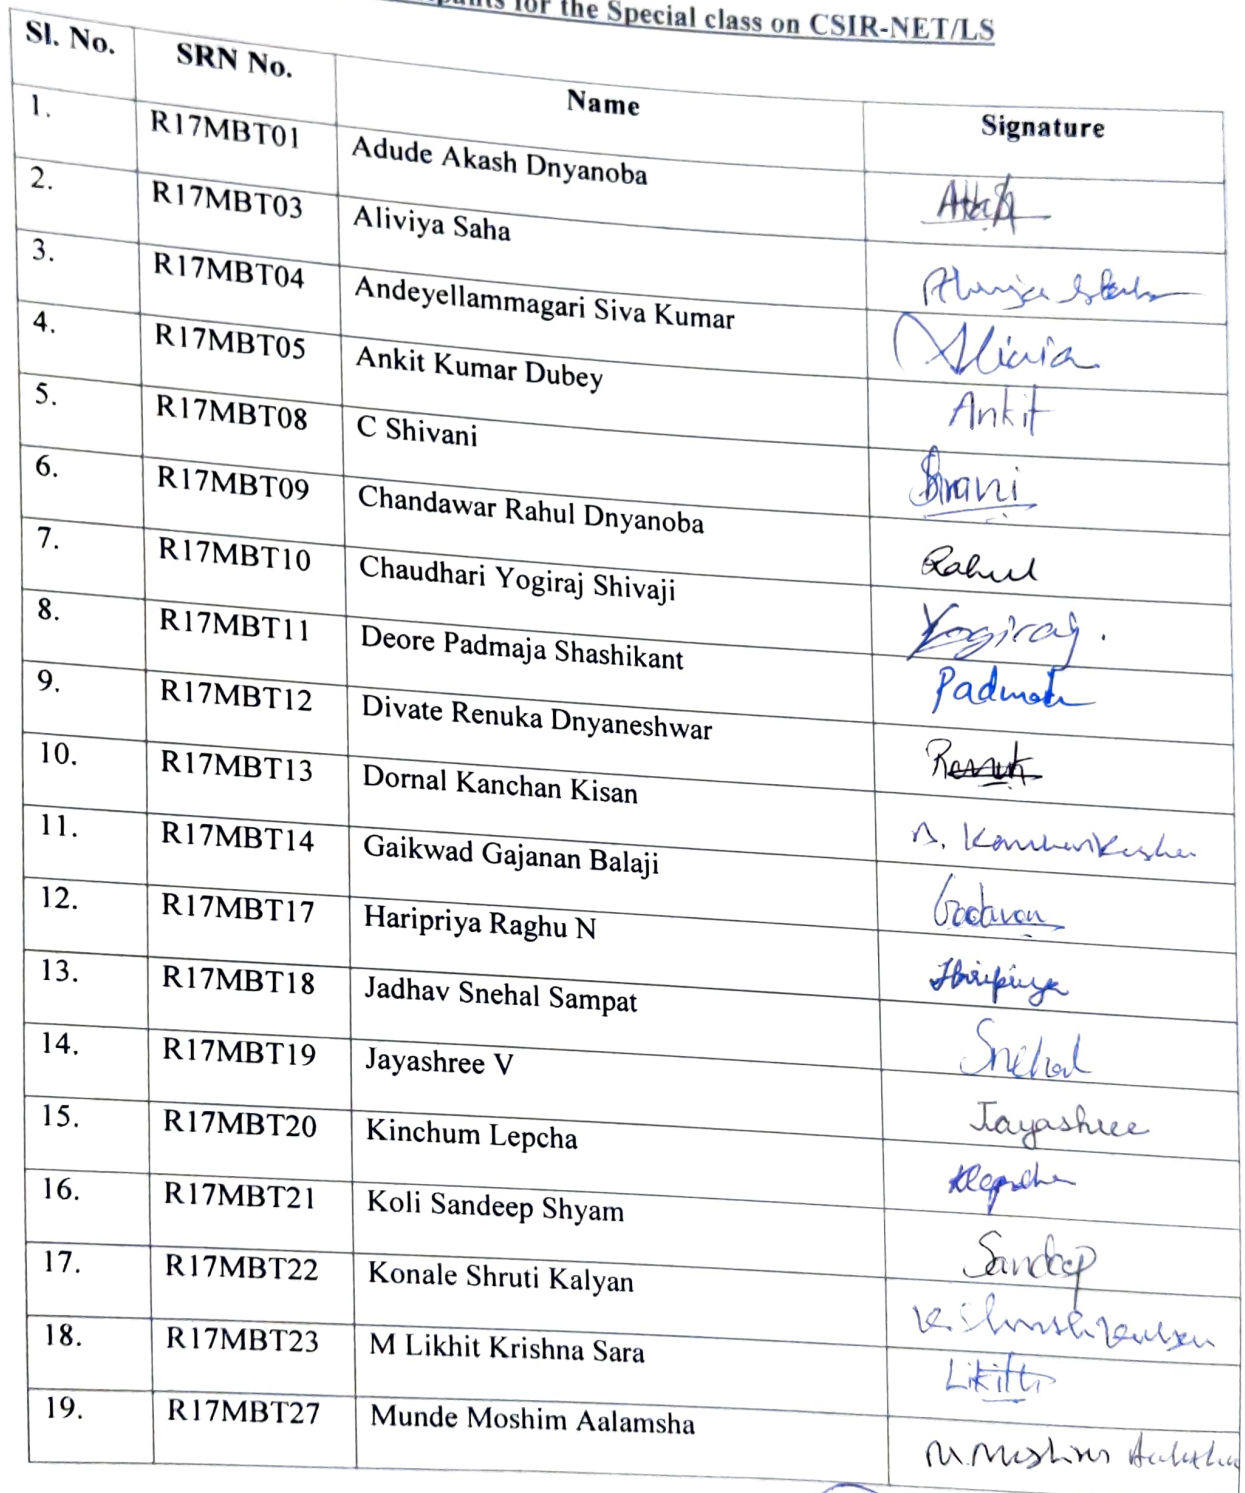 for the Special class on CSIR-NET/LS
Sl. No. SRN No. Name Signature
1. R17MBT01 Adude Akash Dnyanoba
2. R17MBT03 Aliviya Saha
3. R17MBT04 Andeyellammagari Siva Kumar
4. R17MBT05 Ankit Kumar Dubey Ankit
5. R17MBT08 C Shivani
6. R17MBT09 Chandawar Rahul Dnyanoba Rahul
7. R17MBT10 Chaudhari Yogiraj Shivaji Yogiraj.
8. R17MBT11 Deore Padmaja Shashikant
9. R17MBT12 Divate Renuka Dnyaneshwar
10. R17MBT13 Dornal Kanchan Kisan
11. R17MBT14 Gaikwad Gajanan Balaji
12. R17MBT17 Haripriya Raghu N Haripriya
13. R17MBT18 Jadhav Snehal Sampat Snehal
14. R17MBT19 Jayashree V Jayashree
15. R17MBT20 Kinchum Lepcha
16. R17MBT21 Koli Sandeep Shyam Sandeep
17. R17MBT22 Konale Shruti Kalyan
18. R17MBT23 M Likhit Krishna Sara
19. R17MBT27 Munde Moshim Aalamsha